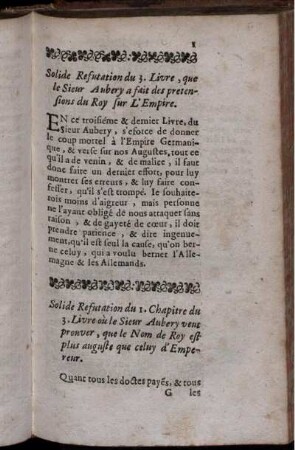 1
Solide Refutation du 3. Livre, que
le Sieur Aubery a fait des preten-
sions du Roy sur L'Empire.
EN ce troisiéme & dernier Livre, du
Sieur Aubery, s'eforce de donner
le coup mortel à l'Empire Germani-
que, & verse sur nos Augustes, tout ce
qu'il a de venin, & de malice, il faut
donc faire un dernier effort, pour luy
montrer ses erreurs, & luy faire con-
fesser, qu'il s'est trompé. Ie souhaite-
rois moins d'aigreur, mais personne
ne l'ayant obligé de nous attaquer sans
raison, & de gayeté de cœur, il doit
prendre patience, & dire ingenue-
ment, qu'il est seul la cause, qu'on ber-
ne celuy, qui a voulu berner l'Alle-
magne & les Allemands.
Solide Refutation du 1. Chapitre du
3. Livre où le Sieur Aubery veut
prouver, que le Nom de Roy est
plus auguste que celuy d'Empe-
reur.
Quant tous les doctes payés, & tous
G les